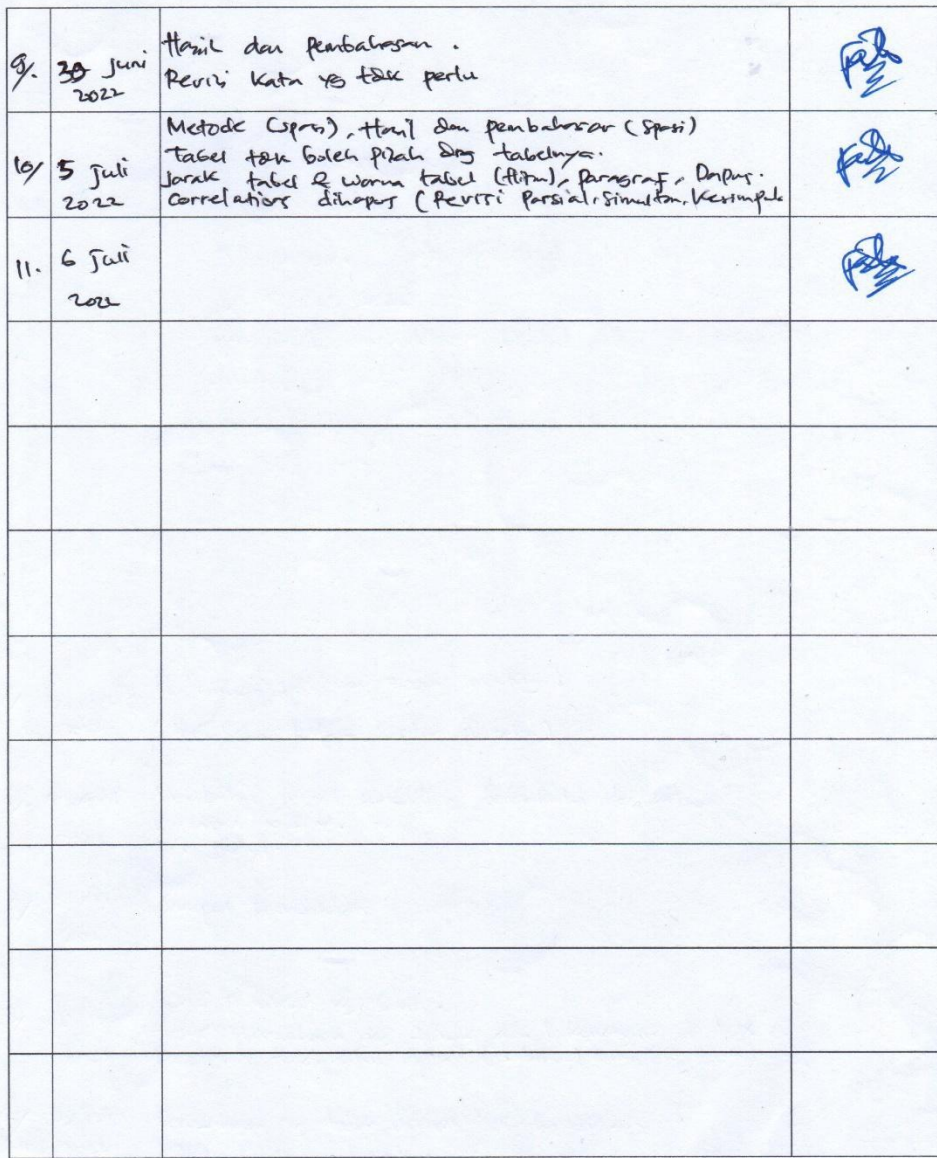 9/. 30 Juni 2022
Hasil dan pembahasan.
Revisi kata yg tdk perlu
10/ 5 Juli 2022
Metode (spasi), Hasil dan pembahasan (spasi)
tabel tdk boleh pisah dng tabelnya.
Jarak tabel & warna tabel (Hitam), paragraf, Dapus.
correlations dihapus (Revisi Parsial, Simultan, Kesimpul
11. 6 Juli
2022